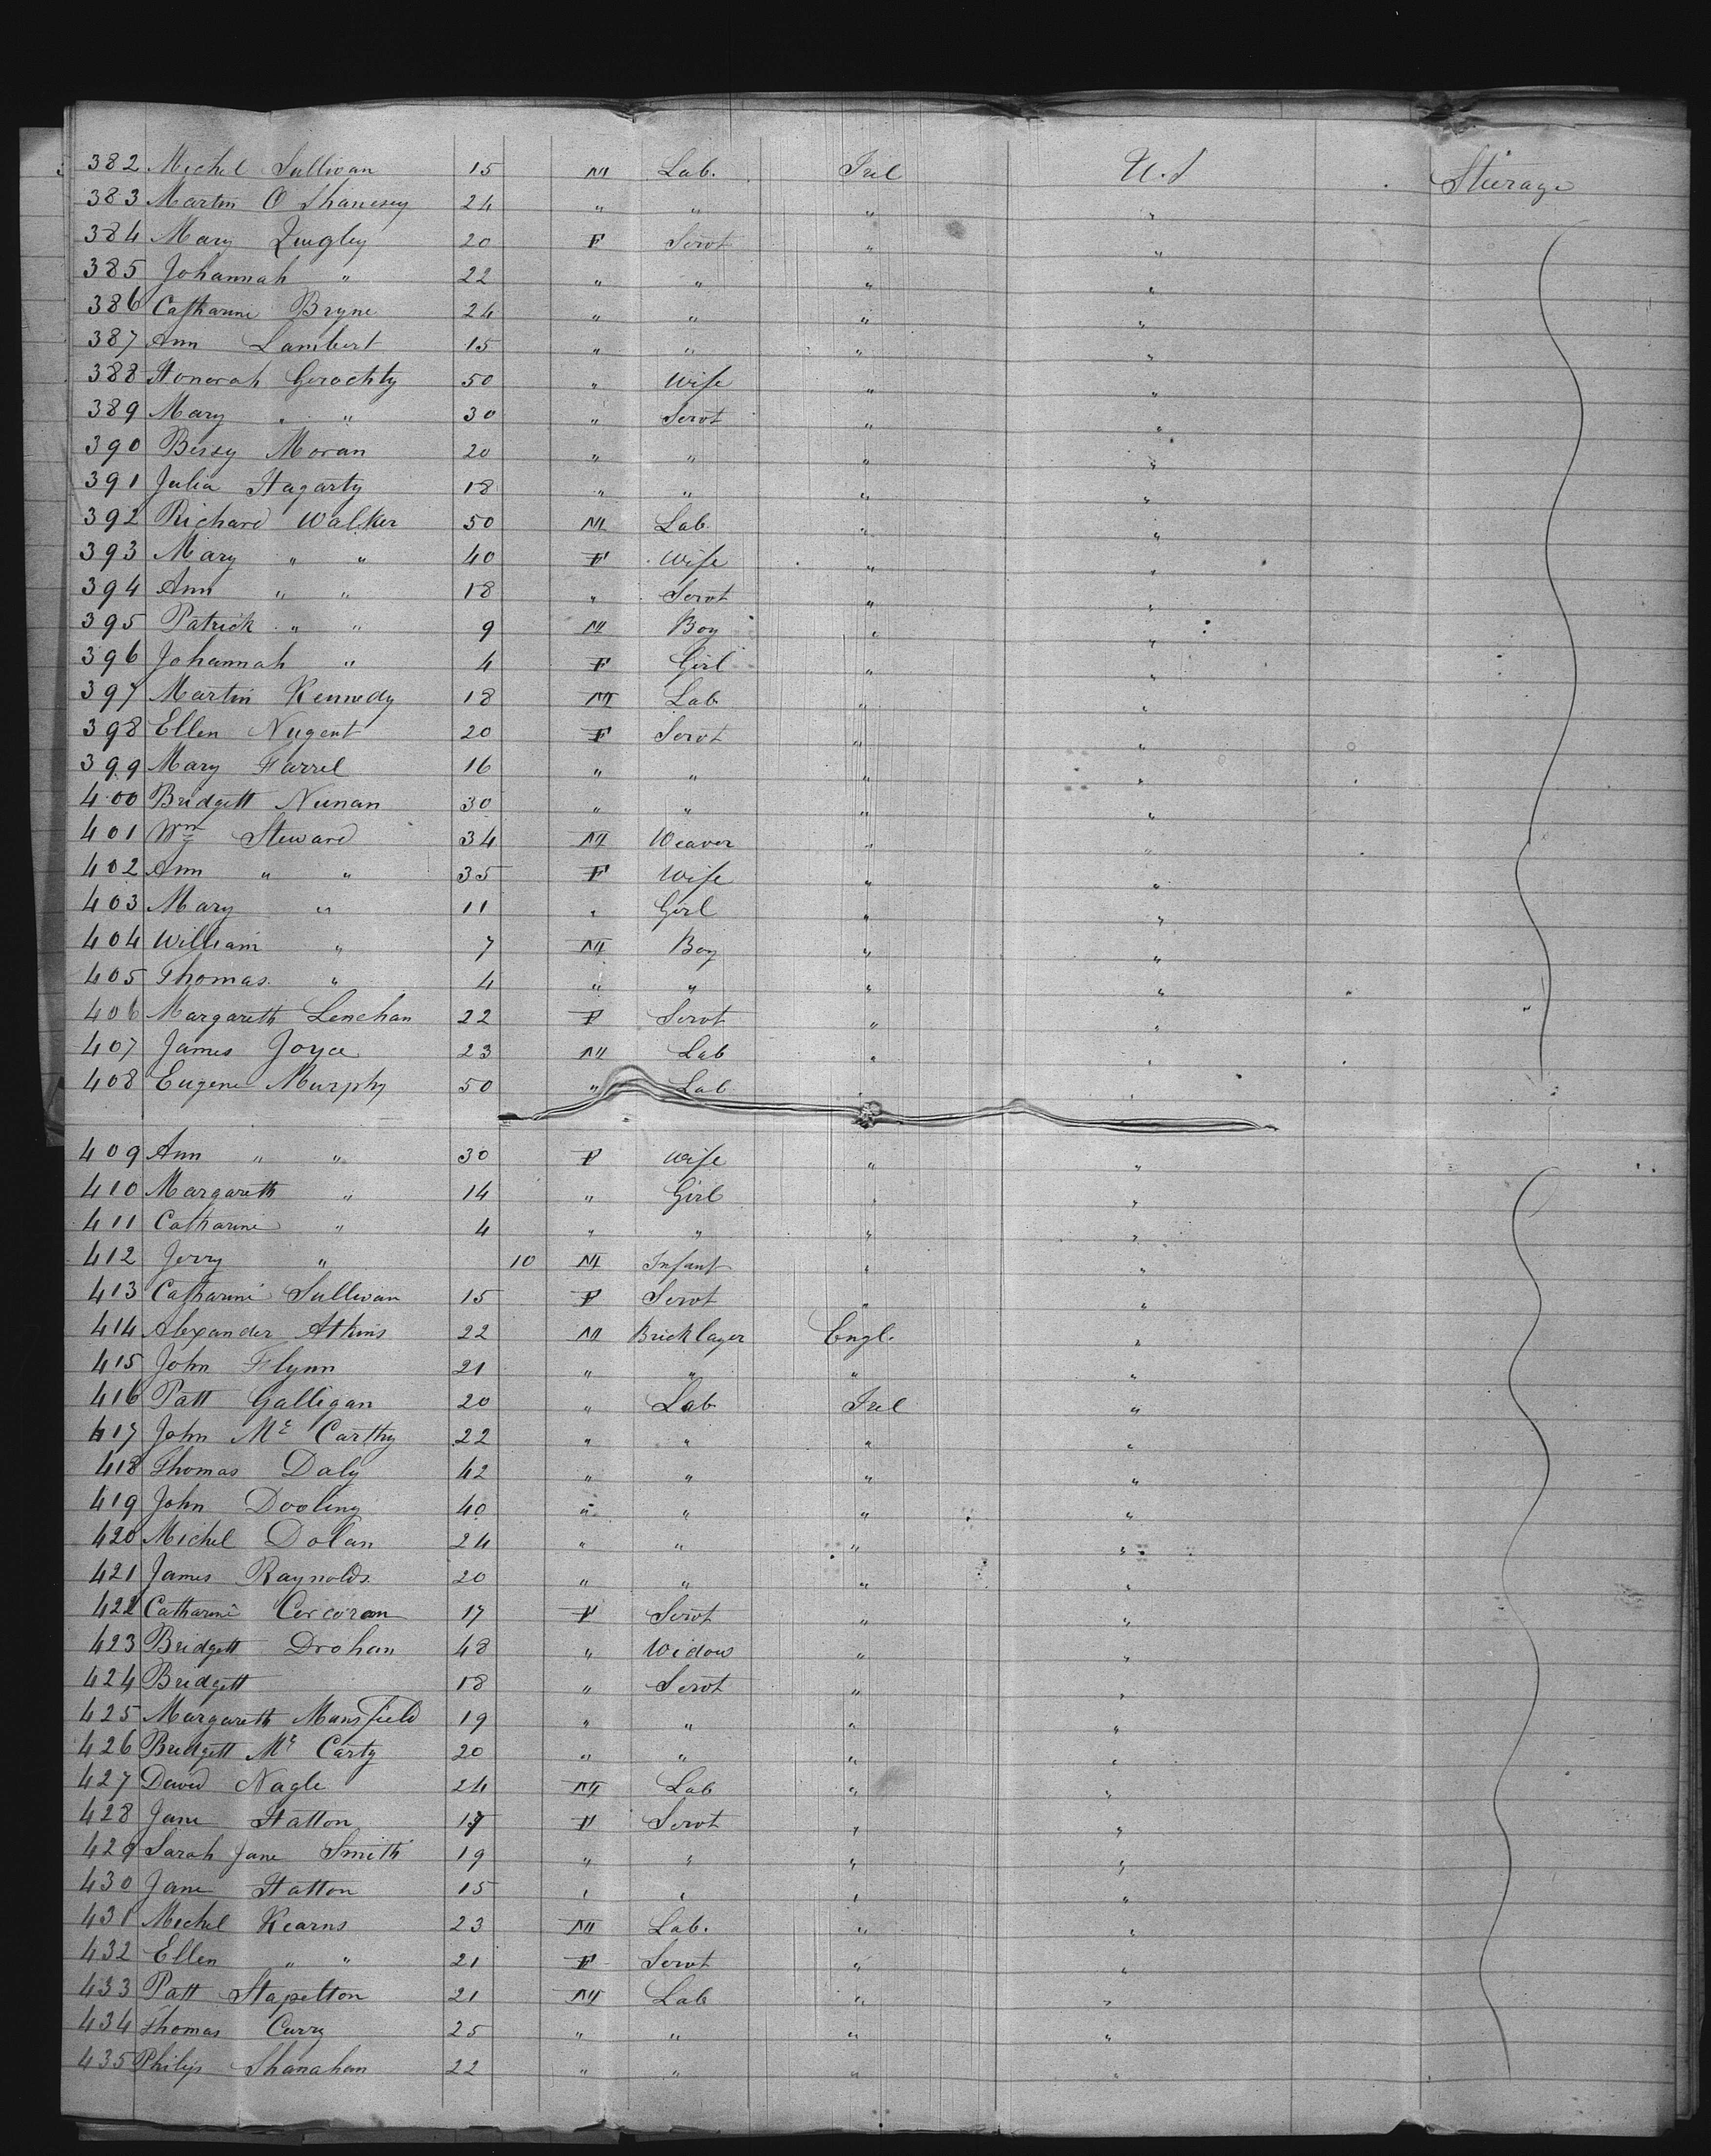 382 Michel Sullivan 15 M Lab. Irel U.S Steerage
383 Martin O Shanesey 24 " " " "
384 Mary Quigley 20 F Servt " "
385 Johannah " 22 " " " "
386 Catharine Bryne 24 " " " "
387 Ann Lambert 15 " " " "
388 Honorah Gerochty 50 " Wife " "
389 Mary " " 30 " Servt " "
390 Bessy Moran 20 " " " "
391 Julia Hagarty 18 " " " "
392 Richard Walker 50 M Lab " "
393 Mary " " 40 F Wife " "
394 Ann " " 18 " Servt " "
395 Patrick " " 9 M Boy " "
396 Johannah " 4 F Girl " "
397 Martin Kennedy 18 M Lab " "
398 Ellen Nugent 20 F Servt " "
399 Mary Farrel 16 " " " "
400 Bridgett Nunan 30 " " " "
401 Wm Steward 34 M Weaver " "
402 Ann " " 35 F Wife " "
403 Mary " 11 " Girl " "
404 William " 7 M Boy " "
405 Thomas " 4 " " " "
406 Margareth Lenehan 22 F Servt " "
407 James Joyce 23 M Lab " "
408 Eugene Murphy 50 " Lab " "
409 Ann " " 30 F Wife " "
410 Margareth " 14 " Girl " "
411 Catharine " 4 " " " "
412 Jerry " 10 M Infant " "
413 Catharine Sullivan 15 F Servt " "
414 Alexander Atkins 22 M Bricklayer Engl. "
415 John Flynn 21 " " " "
416 Patt Galligan 20 " Lab Irel "
417 John Mc Carthy 22 " " " "
418 Thomas Daly 42 " " " "
419 John Dooling 40 " " " "
420 Michel Dolan 24 " " " "
421 James Raynolds 20 " " " "
422 Catharine Corcoran 17 F Servt " "
423 Bridgett Drohan 48 " Widow " "
424 Bridgett 18 " Servt " "
425 Margareth Mansfield 19 " " " "
426 Bridgett Mc Carty 20 " " " "
427 David Nagle 24 M Lab " "
428 Jane Hatton F Servt " "
429 Sarah Jane Smith 19 " " " "
430 Jane Hatton 15 " " " "
431 Michel Kearns 23 M Lab. " "
432 Ellen " " 21 F Servt " "
433 Patt Stapelton 21 M Lab " "
434 Thomas Curry 25 " " " "
435 Philip Shanahan 22 " " " "